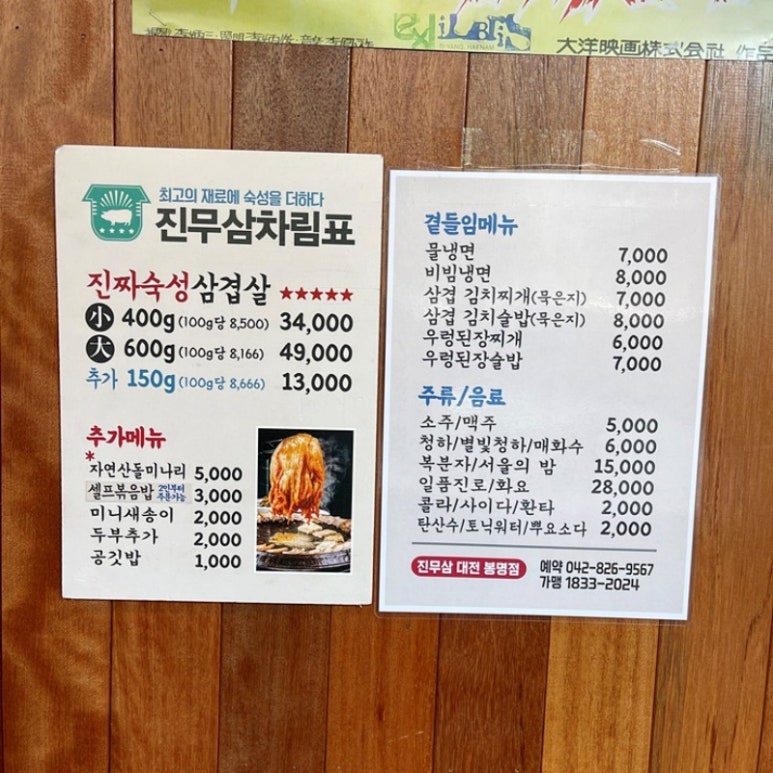 exlibris
HAENAM
大洋映画株式会社 作品
최고의 재료에 숙성을 더하다
진무삼차림표
진짜숙성삼겹살 ★★★★★
小 400g (100g당 8,500) 34,000
大 600g (100g당 8,166) 49,000
추가 150g (100g당 8,666) 13,000
추가메뉴
*
자연산돌미나리 5,000
셀프볶음밥 2인부터 주문가능 3,000
미니새송이 2,000
두부추가 2,000
공깃밥 1,000
곁들임메뉴
물냉면 7,000
비빔냉면 8,000
삼겹 김치찌개(묵은지) 7,000
삼겹 김치술밥(묵은지) 8,000
우렁된장찌개 6,000
우렁된장술밥 7,000
주류/음료
소주/맥주 5,000
청하/별빛청하/매화수 6,000
복분자/서울의 밤 15,000
일품진로/화요 28,000
콜라/사이다/환타 2,000
탄산수/토닉워터/뿌요소다 2,000
진무삼 대전 봉명점 예약 042-826-9567
가맹 1833-2024